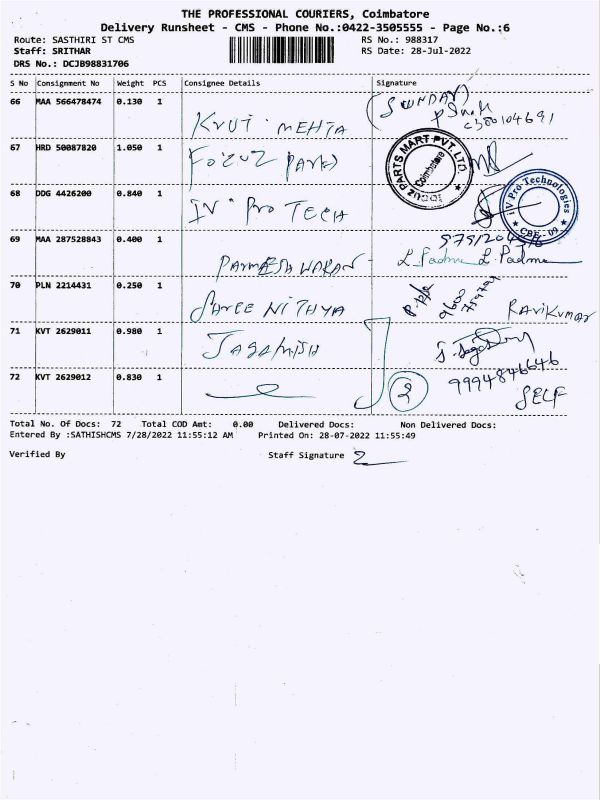 THE PROFESSIONAL COURIERS, Coimbatore
Delivery Runsheet - CMS - Phone No.:0422-3505555 - Page No.:6
Route: SASTHIRI ST CMS
RS No.: 988317
Staff: SRITHAR
RS Date: 28-Jul-2022
DRS No.: DCJB98831706
S No Consignment No Weight PCS Consignee Details Signature
66 MAA 566478474 0.130 1
KRUTI MEHTA
(SUNDAR)
67 HRD 50087820 1.050 1
PARTS
PARTS MART PVT. LTD.
Coimbatore
68 DDG 4426200 0.840 1
IV Pro TECH
iV Pro Technologies
CBE - 09
69 MAA 287528843 0.400 1
PARMESHWARAN
L. Padma L. Padma
70 PLN 2214431 0.250 1
SHREE NITHYA
RAVIKUMAR
71 KVT 2629011 0.980 1
JAGADHISH
9994846646
72 KVT 2629012 0.830 1
2
SELF
Total No. Of Docs: 72 Total COD Amt: 0.00 Delivered Docs: Non Delivered Docs:
Entered By :SATHISHCMS 7/28/2022 11:55:12 AM Printed On: 28-07-2022 11:55:49
Verified By Staff Signature